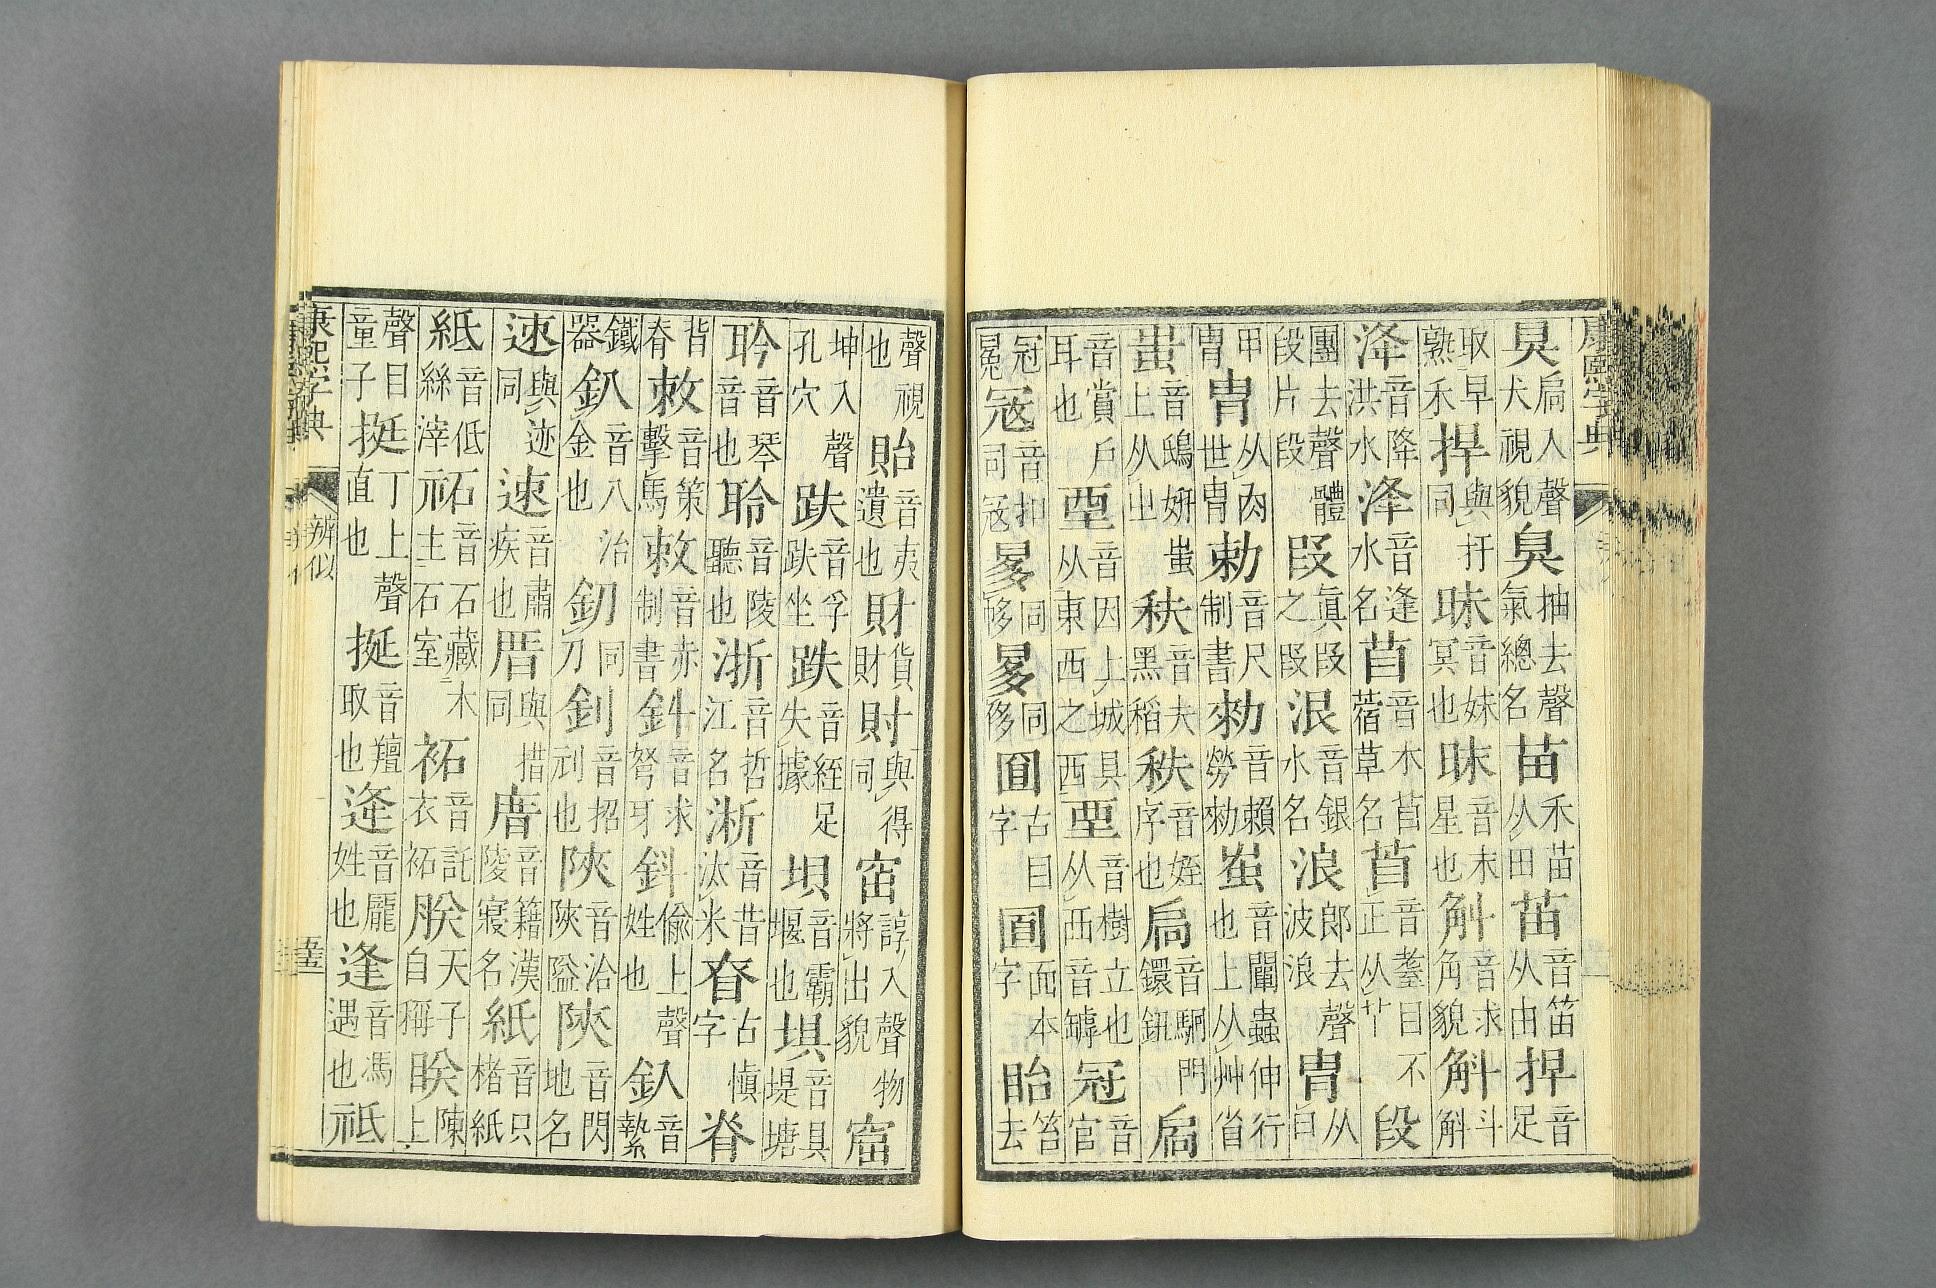 康熙字典
狊扃入聲犬視貌臭抽去聲氣總名苗禾苗从田苖音笛从由捍音足
取早熟禾捍與扞同昧音妹冥也眜音末星也觓音求角貌斛斗斛
洚音降洪水浲音逢水名苜音木苜蓿草名苜音耄目不正从𦫳段
團去聲體段片段叚眞叚之叚泿音銀水名浪郎去聲波浪冑从冃
甲冑胄从肉世胄勅音尺制書勑音賴勞勑蚩音闡蟲伸行也上从艸省
蚩音鴟妍蚩上从㞢䄮音夫黑稻秩音姪序也扃音駉門鐶鈕扄
音賞戶耳也垔音因土城具从東西之西垔音樹立也从西音罅冠音官
冠冕寇音扣司寇同侈同侈圁古目字圓面本字眙笞去
聲視也貽音夷遺也財貨財與得同窋諄入聲物將出貌窟
坤入聲孔穴趺音孚趺坐跌音絰足失據垻音霸堰也埧音具堤塘
耹音琴音也聆音陵聽也浙音哲江名淅音昔汰米昚古愼字脊
背脊敇音策擊馬敕音赤制書音求弩牙鈄偷上聲姓也釞音
鐵器釟音八治金也釖同刀釗音招刓也陜音洽陜隘陝音閃地名
速與迹同速音肅疾也厝與措同音籍漢陵寢名紙音只楮紙
紙音低絲滓祏音石藏木主石室袥音託衣袥朕天子自稱眹陳上
聲目童子挺丁上聲直也挻音羶取也逄音龐姓也逢音馮遇也祇
康熙字典 辨似